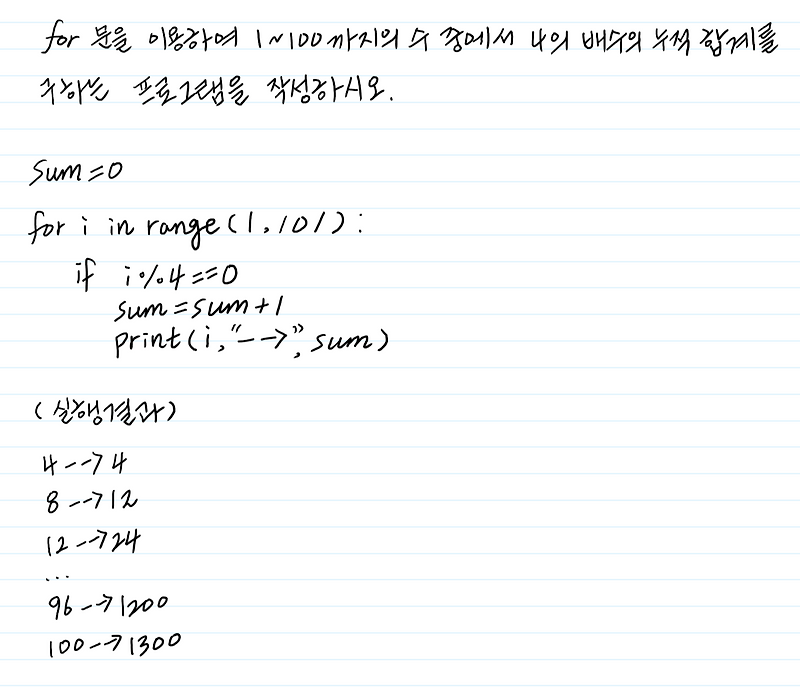 for 문을 이용하여 1~100까지의 수 중에서 4의 배수의 누적 합계를
구하는 프로그램을 작성하시오.
sum=0
for i in range(1,101):
if i%4==0
sum=sum+1
print(i,"-->",sum)
(실행결과)
4-->4
8-->12
12-->24
...
96-->1200
100-->1300